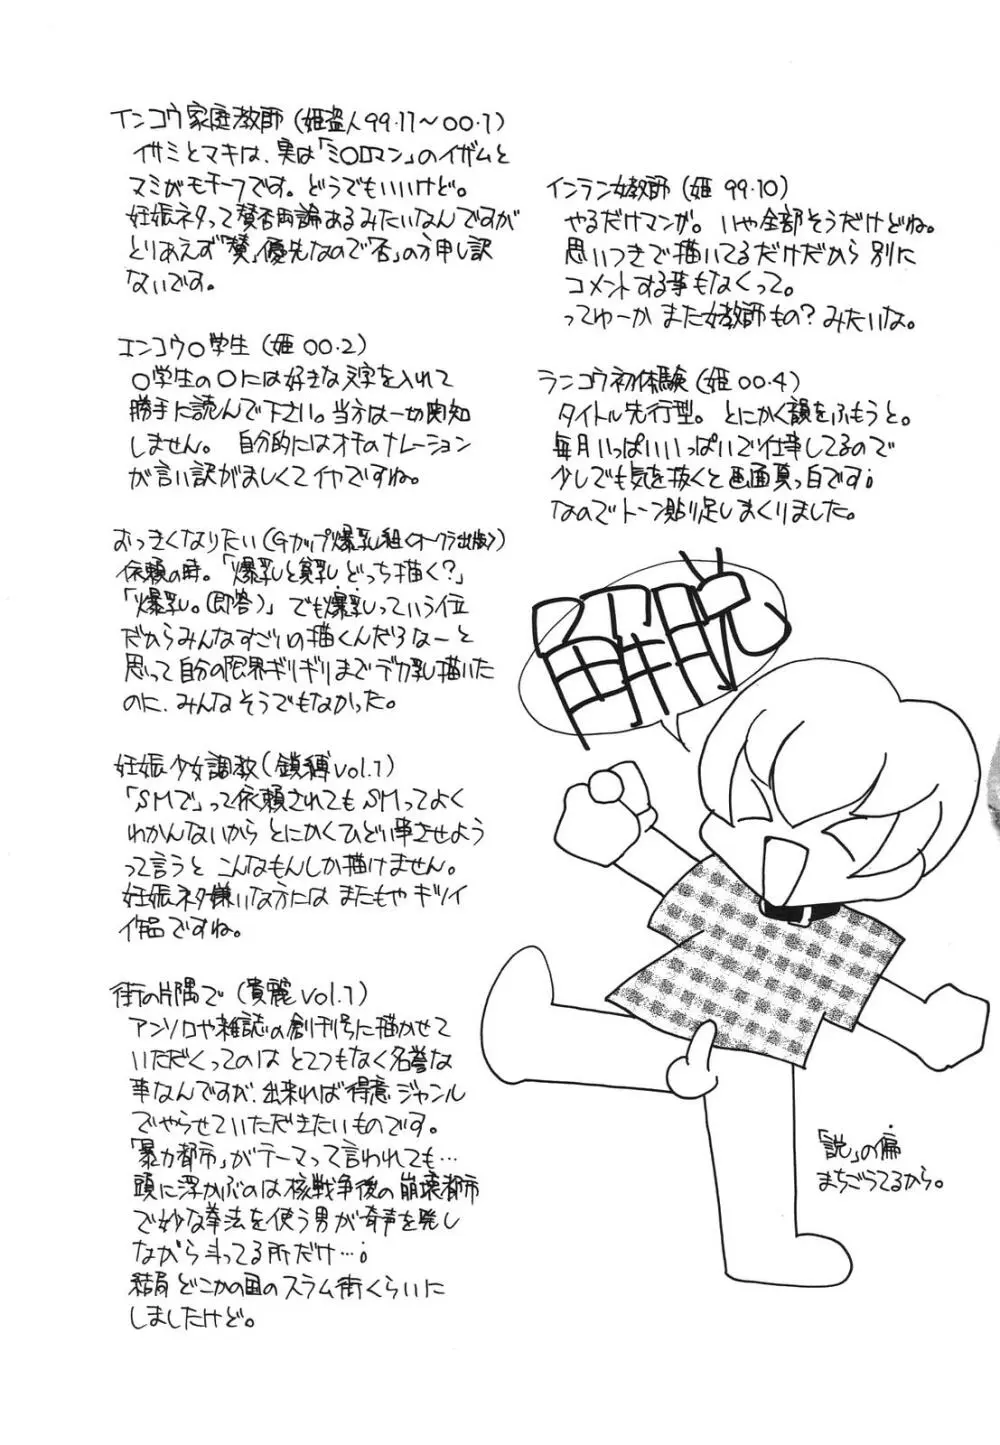 インコウ家庭教師(姫盗人99.11~00.1)
イサミとマキは、実は「ミ〇ロマン」のイガムと
マミがモチーフです。どうでもいいけど。
妊娠ネタって賛否両論あるみたいなんですが
とりあえず「賛」優先なので「否」の方申し訳
ないです。
エンコウ〇学生(姫00.2)
〇学生の〇には好きな文字を入れて
勝手に読んで下さい。当方は一切関知
しません。 自分的にはオチのナレーション
が言い訳がましくてイヤですね。
おっきくなりたい(Gカップ爆乳組<オークラ出版>)
依頼の時。「爆乳と貧乳どっち描く?」
「爆乳。(即答)」でも爆乳っていう位
だからみんなすごいの描くんだろなーと
思って自分の限界ギリギリまでデカ乳描いた
のに、みんなそうでもなかった。
妊娠少女調教(鎖縛vol.1)
「SMで」って依頼されてもSMってよく
わかんないからとにかくひどい事させよう
って言うとこんなもんしか描けません。
妊娠ネタ嫌いな方にはまたもやキツイ
作品ですね。
街の片隅で(貴麗vol.1)
アンソロや雑誌の創刊号に描かせて
いただくってのはとてつもなく名誉な
事なんですが、出来れば得意ジャンル
でやらせていただきたいものです。
「暴力都市」がテーマって言われても…
頭に浮かぶのは核戦争後の崩壊都市
で妙な拳法を使う男が奇声を発し
ながら斗ってる所だけ…;
結局どこかの国のスラム街くらいに
しましたけど。
インラン女教師(姫99.10)
やるだけマンガ。いや全部そうだけどね。
思いつきで描いてるだけだから別に
コメントする事もなくって。
ってゆーかまた女教師もの?みたいな。
ランコウ初体験(姫00.4)
タイトル先行型。とにかく韻をふもうと。
毎月いっぱいいっぱいで仕事してるので
少しでも気を抜くと画面真っ白です;
なのでトーン貼り足しまくりました。
「説」の偏
まちごうてるから。